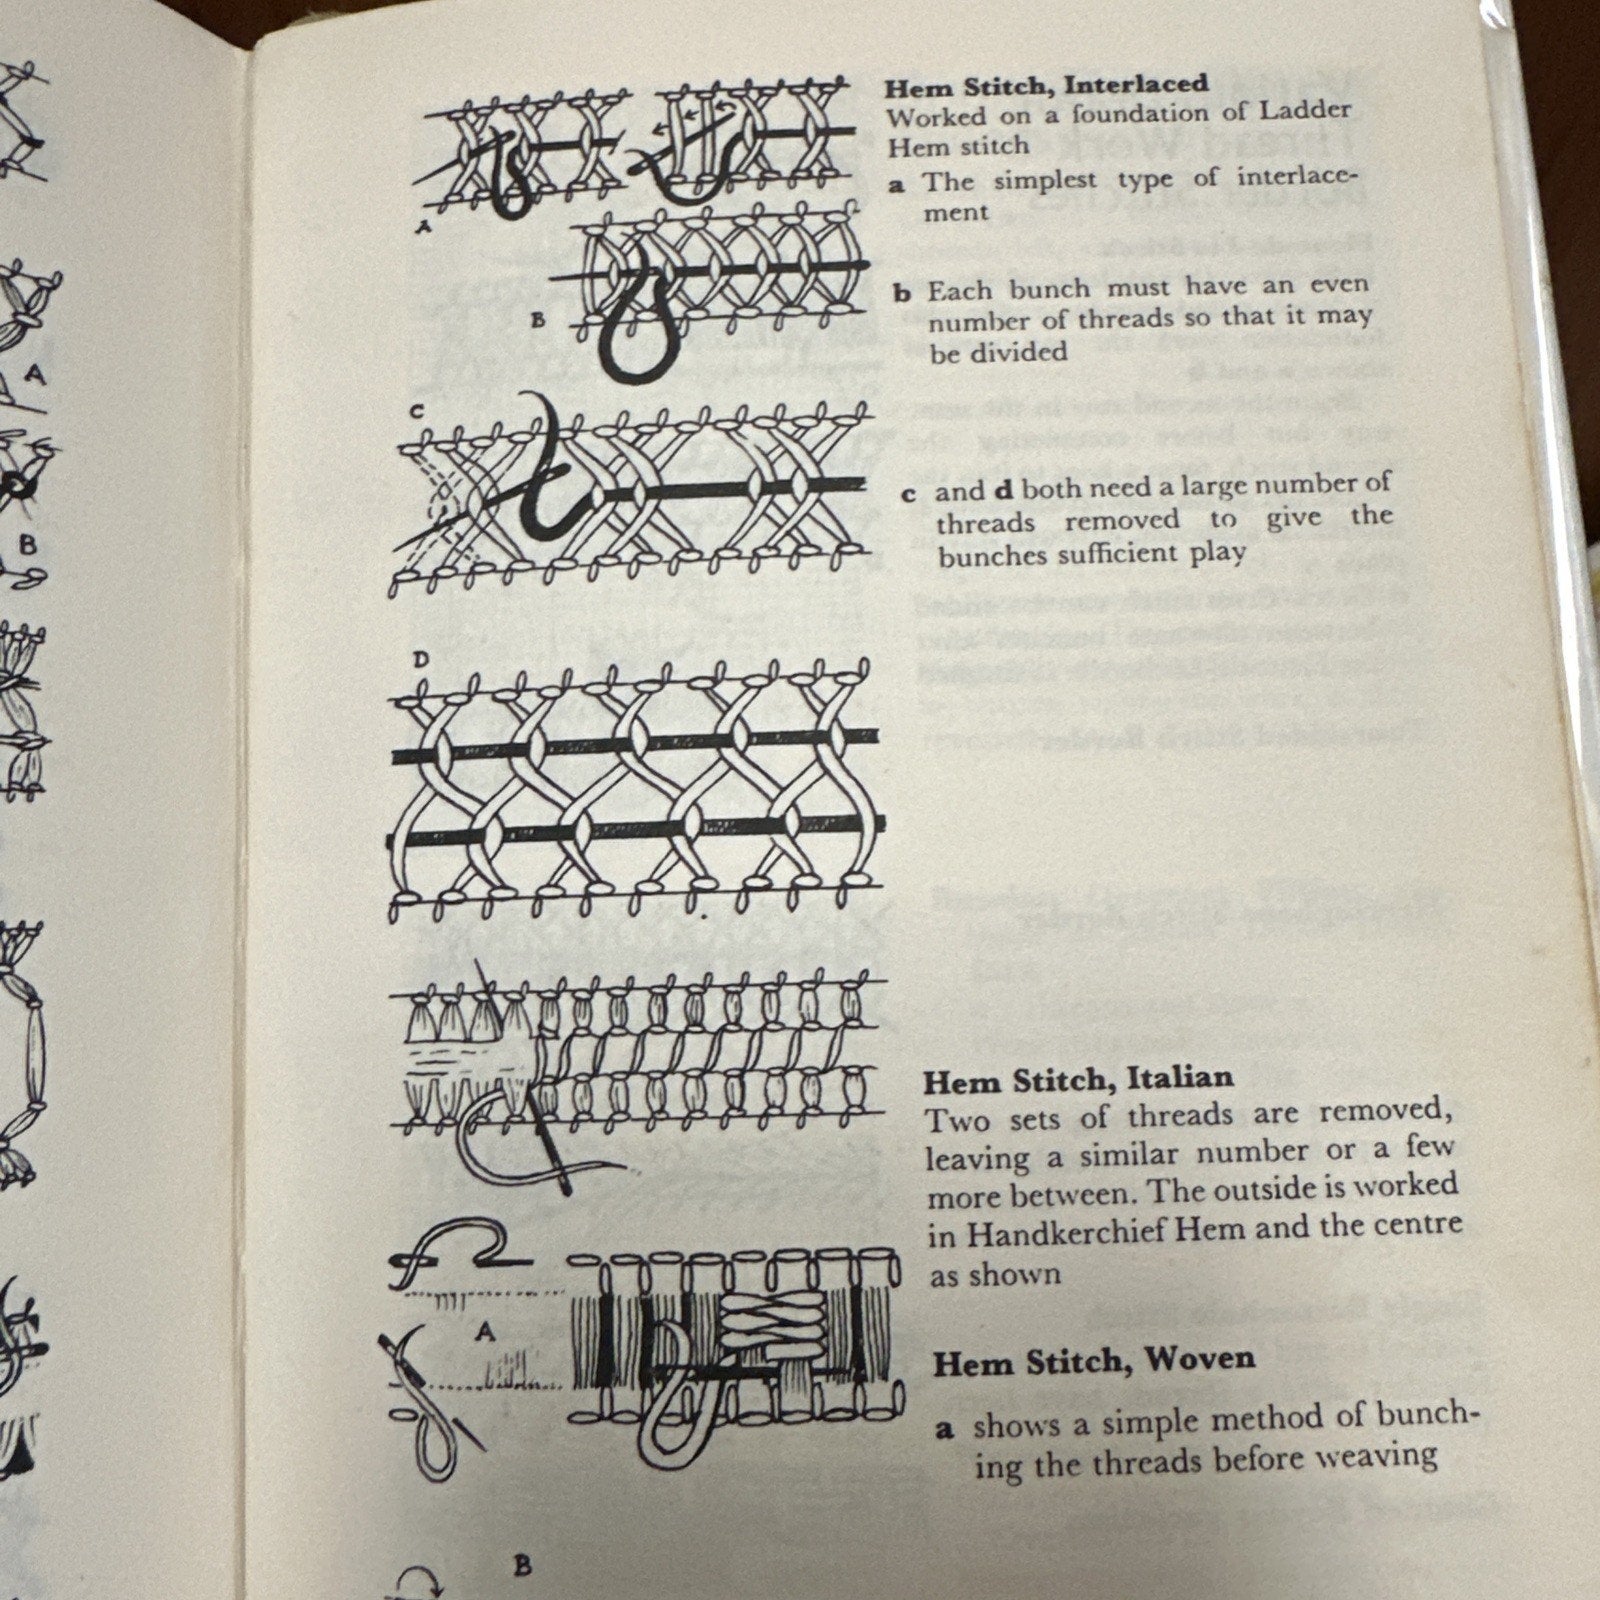 Hem Stitch, Interlaced
Worked on a foundation of Ladder
Hem stitch
a The simplest type of interlace-
ment
A
b Each bunch must have an even
number of threads so that it may
be divided
B
C
c and d both need a large number of
threads removed to give the
bunches sufficient play
D
Hem Stitch, Italian
Two sets of threads are removed,
leaving a similar number or a few
more between. The outside is worked
in Handkerchief Hem and the centre
as shown
Hem Stitch, Woven
A
a shows a simple method of bunch-
ing the threads before weaving
B
A
B